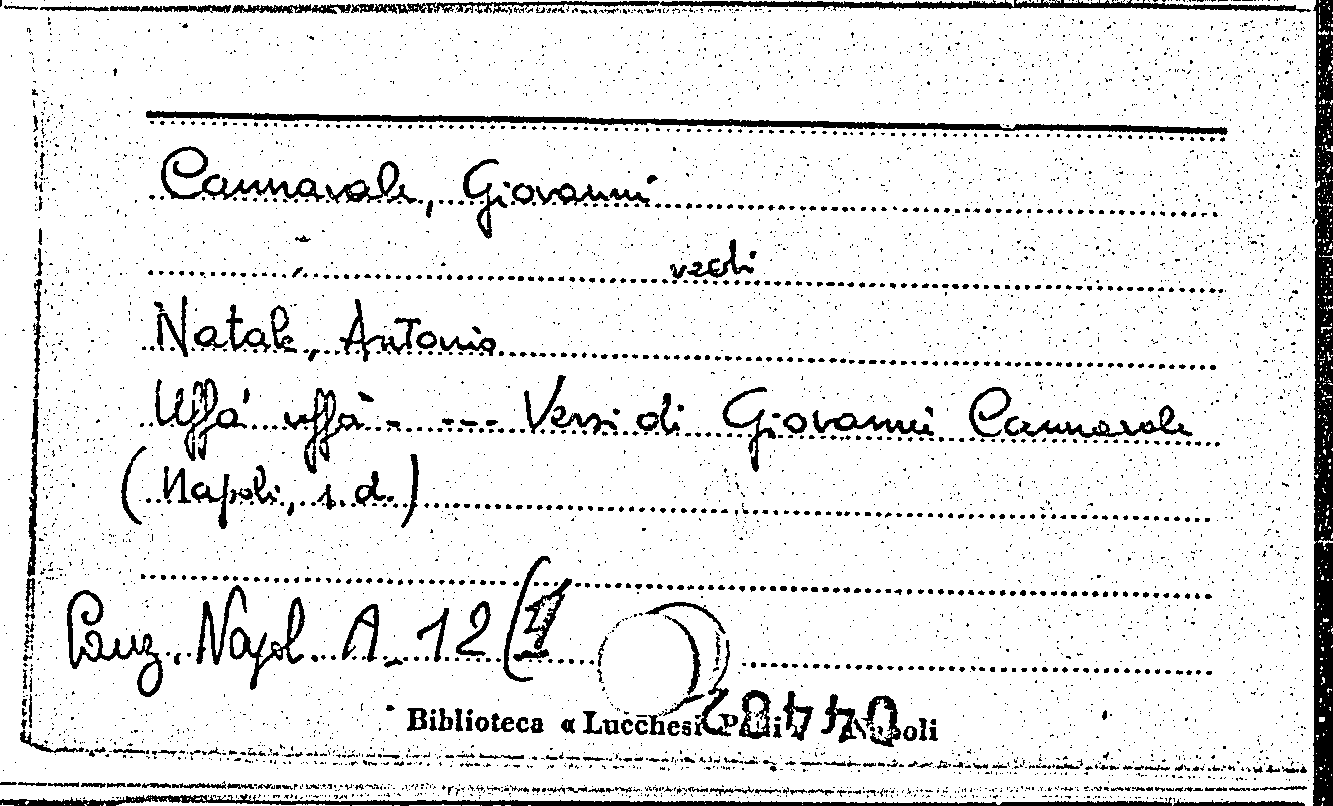 Cannavale, Giovanni
vedi
Natale, Antonio
Uffà uffà - --- Versi di Giovanni Cannavale
(Napoli, s. d.)
Canz. Napol. A. 12(1
Biblioteca « Lucchesi Palli » Napoli